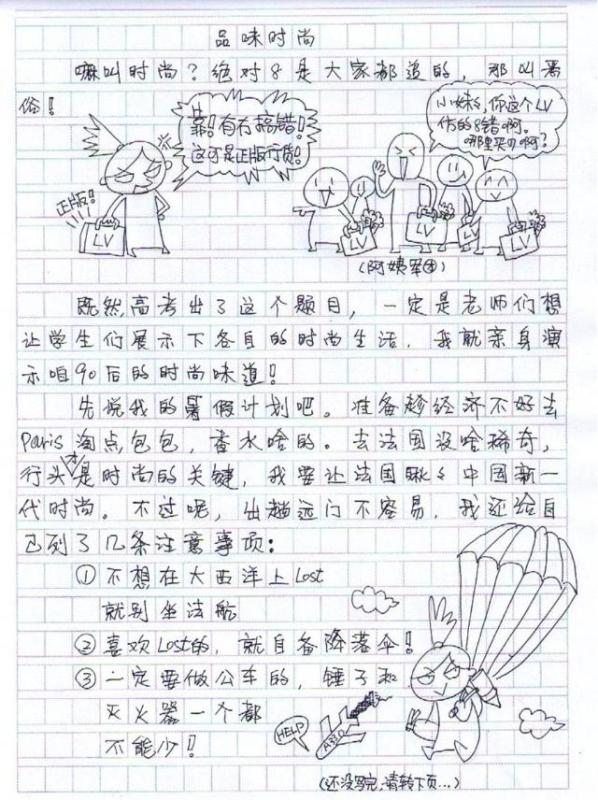 品味时尚
嘛叫时尚？绝对8是大家都道的，那叫恶
俗！
靠！有冇搞错！
这可是正版行货！
小妹，你这个LV
仿的8错啊。
哪里买的啊？
正版！
LV
LV
LV
LV
LV
（阿姨军团）
既然高考出了这个题目，一定是老师们想
让学生们展示下各自的时尚生活，我就亲身演
示咱90后的时尚味道！
先说我的暑假计划吧。准备趁经济不好去
Paris淘点包包，香水啥的。去法国没啥稀奇，
行头才是时尚的关键，我要让法国瞅々中国新一
代时尚。不过呢，出趟远门不容易，我还给自
己列了几条注意事项：
①不想在大西洋上Lost
就别坐法航
②喜欢Lost的，就自备降落伞！
③一定要做公车的，锤子和
灭火器一个都
不能少！
HELP
A330
（还没写完，请转下页…）